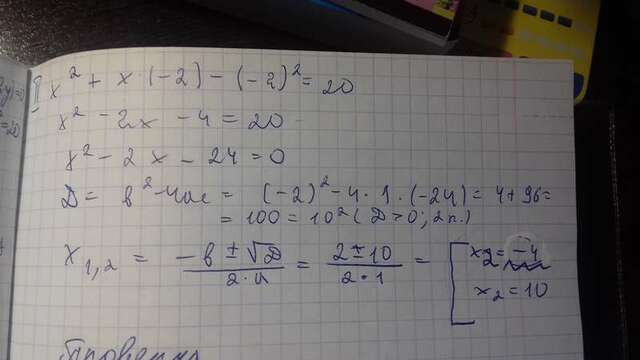 x² + x · (-2) - (-2)² = 20
x² - 2x - 4 = 20
x² - 2x - 24 = 0
D = в² - 4ac = (-2)² - 4 · 1 · (-24) = 4 + 96 =
= 100 = 10² (D > 0; 2 п.)
x₁,₂ = (-в ± √D) / (2 · a) = (2 ± 10) / (2 · 1) = [ x₂ = -4
x₂ = 10